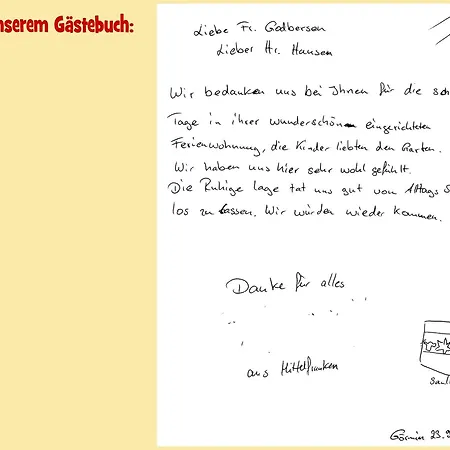 nserem Gästebuch:
Liebe Fr. Godbersen
Lieber Hr. Hansen
Wir bedanken uns bei Ihnen für die sch
Tage in ihrer wunderschön eingerichteten
Ferienwohnung, die Kinder liebten den Garten.
Wir haben uns hier sehr wohl gefühlt.
Die Ruhige Lage tat uns gut vom Alltags S
los zu lassen. Wir würden wieder kommen.
Danke für alles
aus Mittelfranken